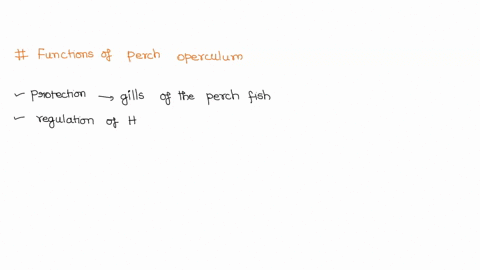 # Functions of perch operculum
✓ Protection → gills of the perch fish
✓ regulation of H